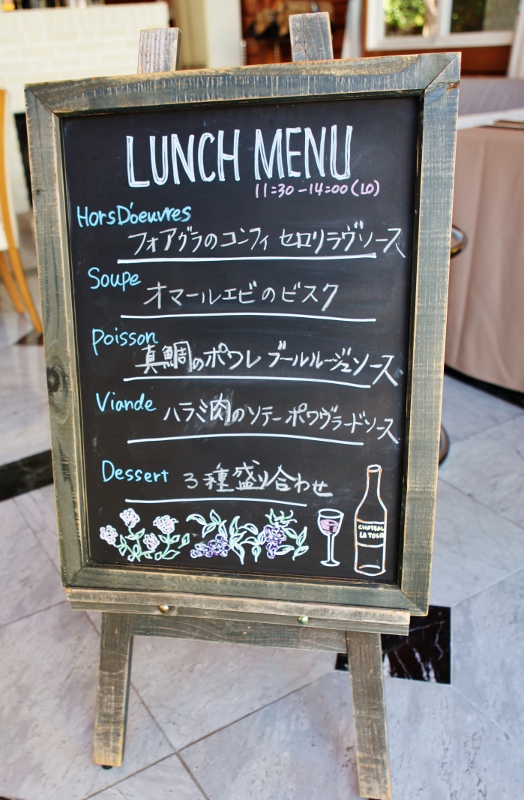 LUNCH MENU
11:30-14:00(LO)
HorsD'oeuvres
フォアグラのコンフィ セロリラヴソース
Soupe
オマールエビのビスク
Poisson
真鯛のポワレ ブールルージュソース
Viande
ハラミ肉のソテー ポワヴラードソース
Dessert
3種盛り合わせ
CHATEAU
LA TOUR